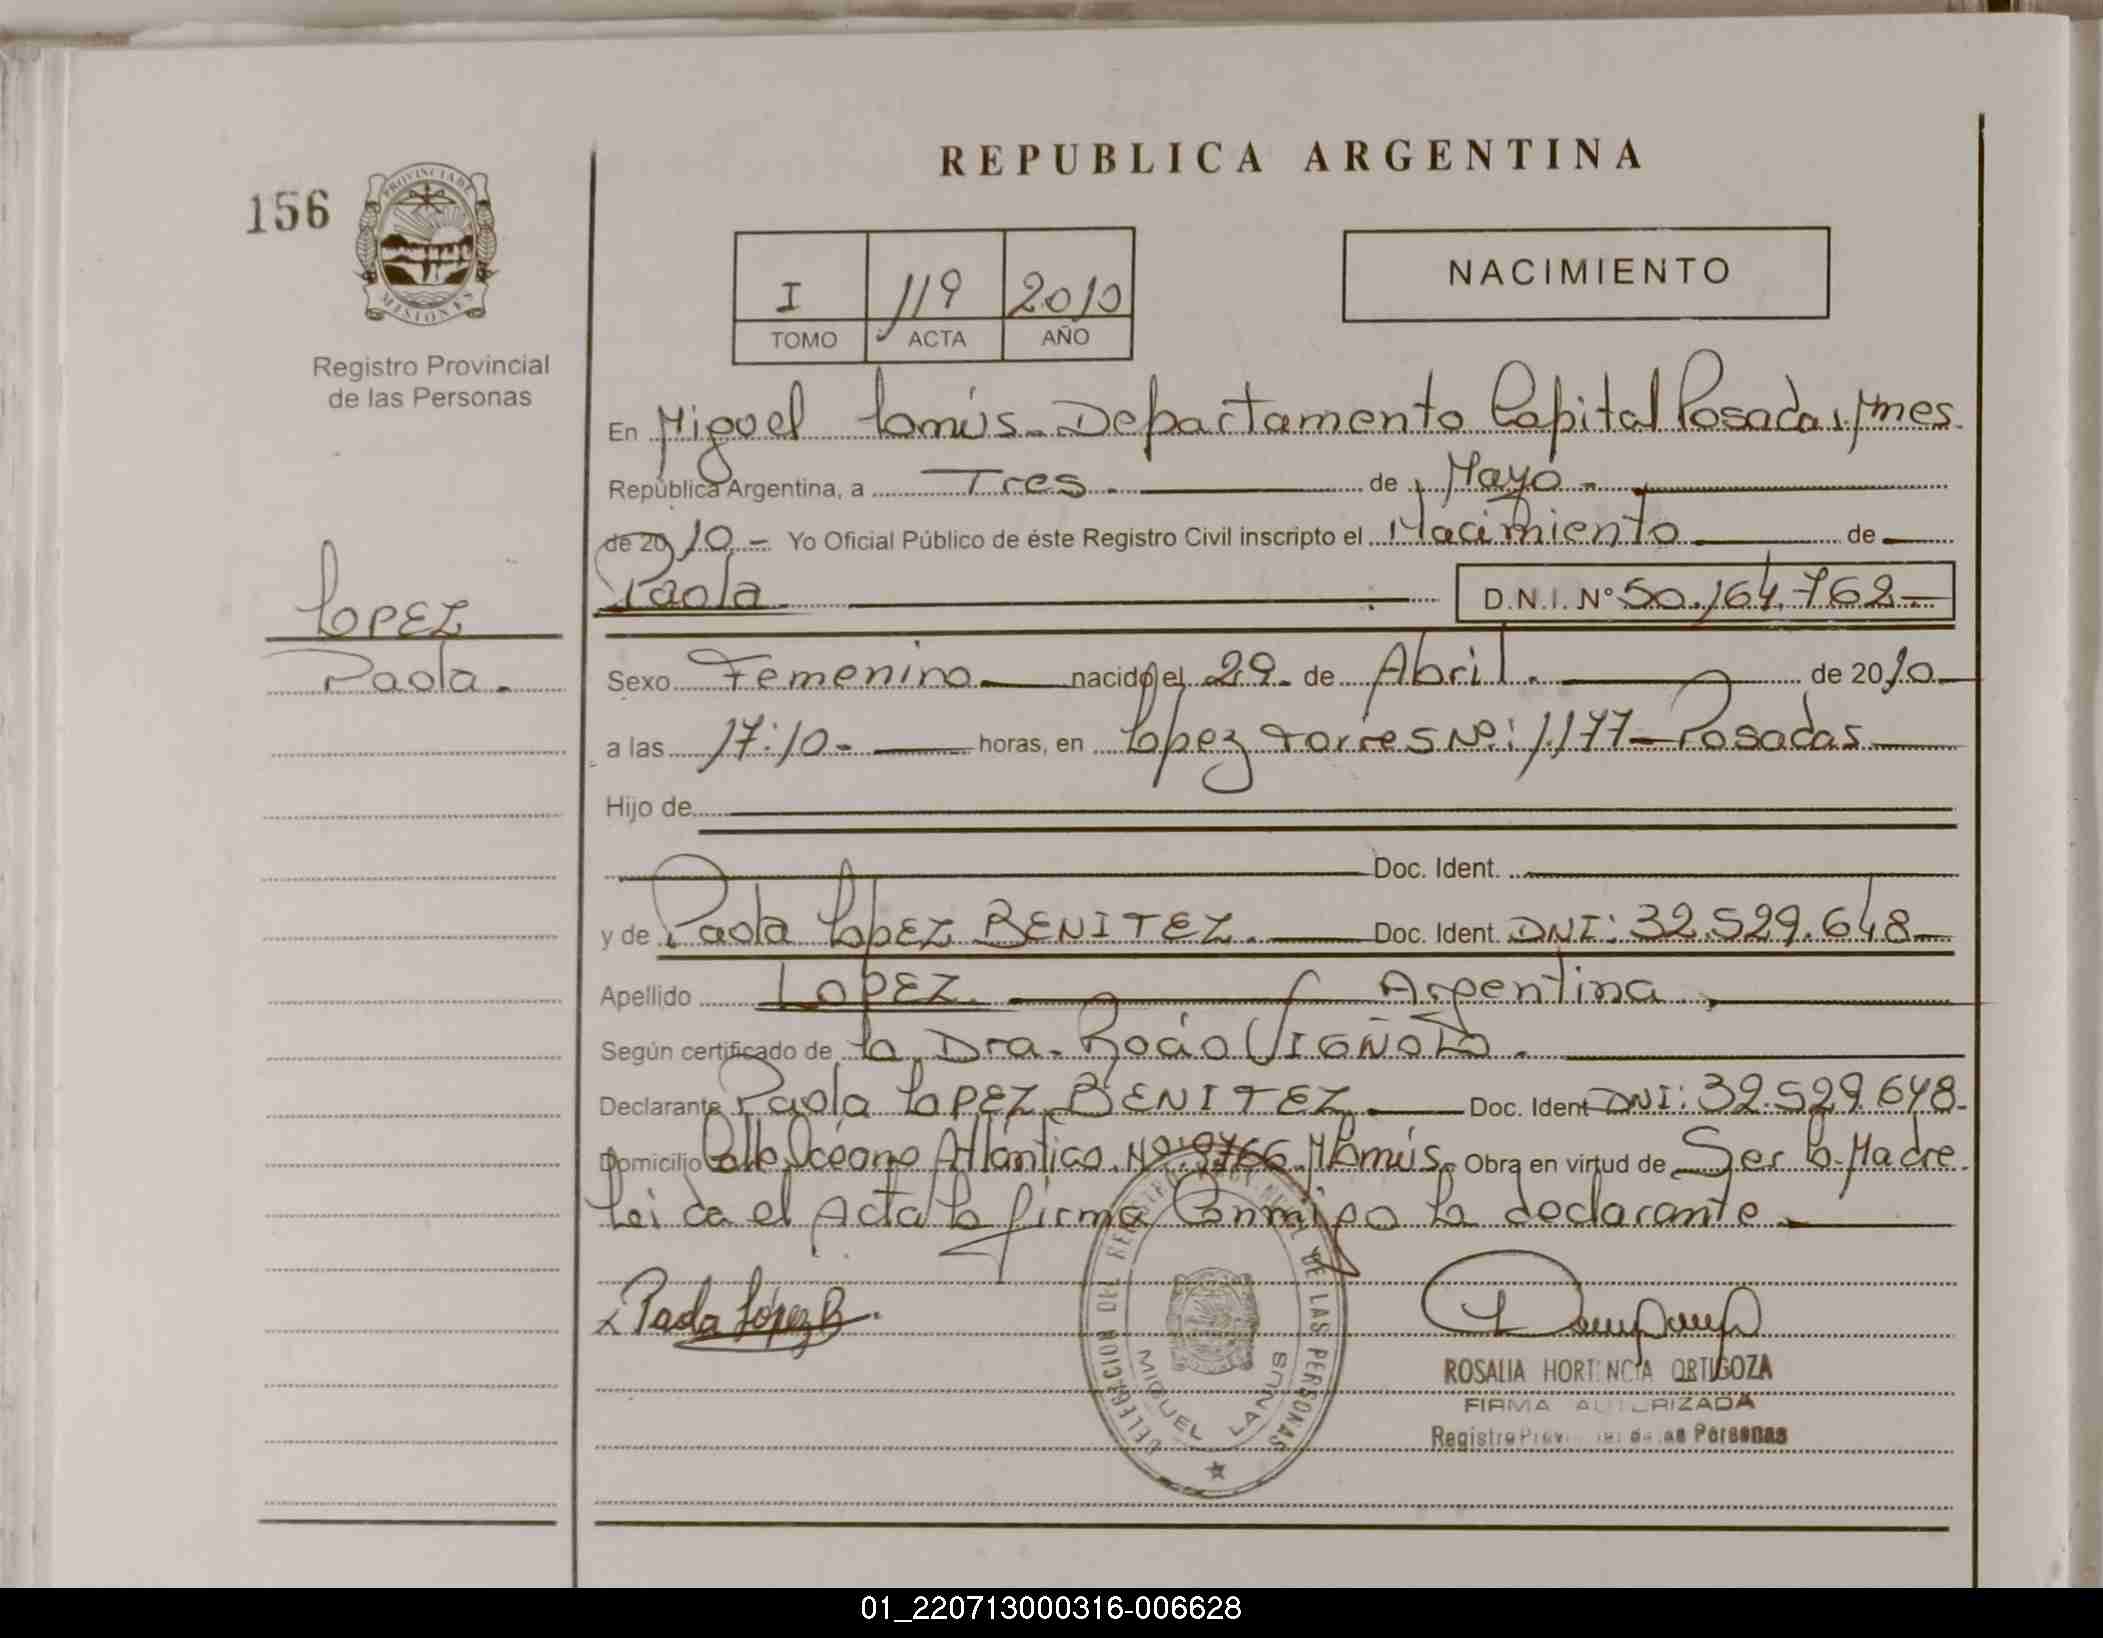 REPUBLICA ARGENTINA
156
PROVINCIA DE
MISIONES
Registro Provincial
de las Personas
I 119 2010
TOMO ACTA AÑO
NACIMIENTO
En Miguel Lanús - Departamento Capital Posadas, Mnes.
República Argentina, a Tres de Mayo
de 2010 - Yo Oficial Público de éste Registro Civil inscripto el Nacimiento de
Paola D.N.I. Nº 50.164.762
LOPEZ
Paola.
Sexo Femenino nacido el 29 de Abril de 2010
a las 17:10 horas, en Lopez Torres Nº: 1.177 - Posadas
Hijo de
Doc. Ident.
y de Paola LOPEZ BENITEZ. Doc. Ident. DNI: 32.529.648
Apellido LOPEZ. Argentina
Según certificado de la Dra. Rocío
Declarante Paola LOPEZ BENITEZ Doc. Ident DNI: 32.529.648.
Domicilio Calle Océano Atlántico Nº: 9766 M. Lanús. Obra en virtud de Ser la Madre.
Leida el Acta la firma Conmigo la declarante
x Paola López B.
DELEGACION DEL REGISTRO PROVINCIAL DE LAS PERSONAS
MIGUEL LANUS
ROSALIA HORTENCIA ORTIGOZA
FIRMA AUTORIZADA
Registro Provincial de las Personas
01_220713000316-006628